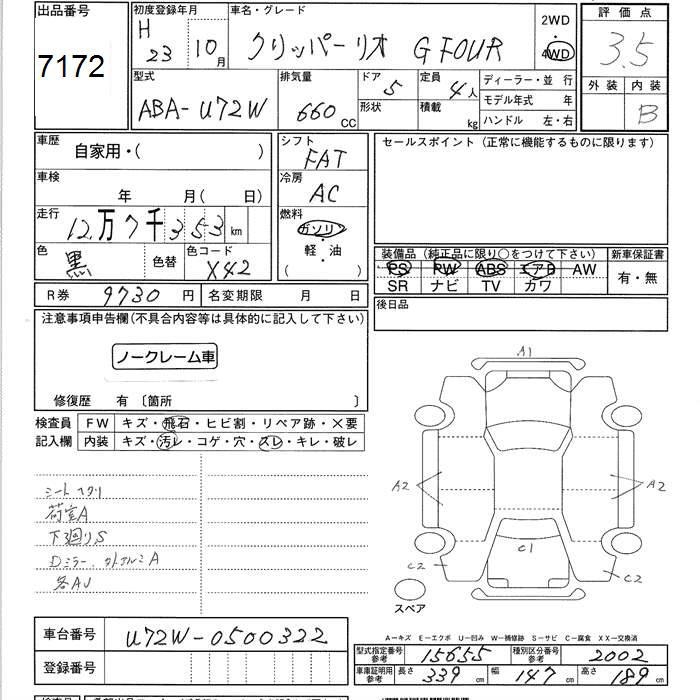 出品番号
7172
初度登録年月
H 23 10月
車名・グレード
クリッパーリオ G FOUR
2WD
4WD
評価点
3.5
外装 内装
B
型式
ABA-U72W
排気量
660 CC
ドア 5
形状
定員 4人
積載 kg
ディーラー・並行
モデル年式 年
ハンドル 左・右
車歴
自家用・( )
車検
年 月( 日)
走行
12万7千353 km
色 黒 色替
色コード X42
シフト
FAT
冷房
AC
燃料
ガソリン
・
軽・油
( )
セールスポイント(正常に機能するものに限ります)
装備品(純正品に限り○をつけて下さい)
PS PW ABS エアB AW
SR ナビ TV カワ
新車保証書
有・無
R券 9730円
名変期限 月 日
後日品
注意事項申告欄(不具合内容等は具体的に記入して下さい)
ノークレーム車
修復歴 有〔箇所 〕
検査員
記入欄
FW キズ・飛石・ヒビ割・リペア跡・×要
内装 キズ・汚レ・コゲ・穴・スレ・キレ・破レ
シートヘタリ
荷室A
下廻りS
Dミラー、
A
各AU
A1
A2
A2
C1
C2
C2
スペア
A―キズ E―エクボ U―凹み W―補修跡 S―サビ C―腐食 XX―交換済
車台番号
U72W-0500322
登録番号
型式指定番号 参考 15655
種別区分番号 参考 2002
車庫証明用 参考
長さ 339 cm
幅 147 cm
高さ 189 cm